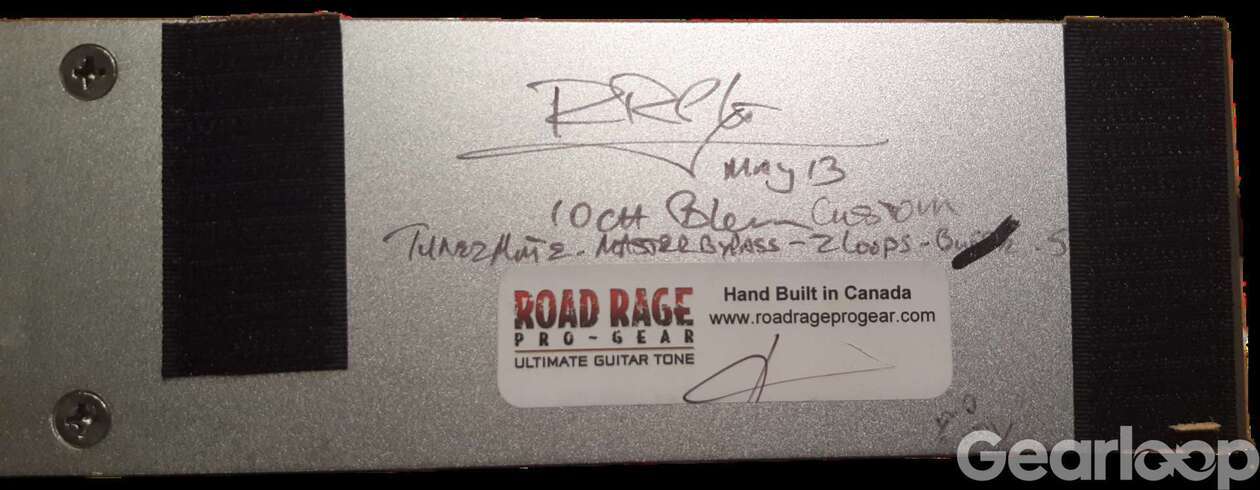 RRPG
May 13
10CH Blem Custom
TUNER MUTE - MASTER BYPASS - 2 LOOPS -
ROAD RAGE
PRO-GEAR
ULTIMATE GUITAR TONE
Hand Built in Canada
www.roadrageprogear.com
Gearloop